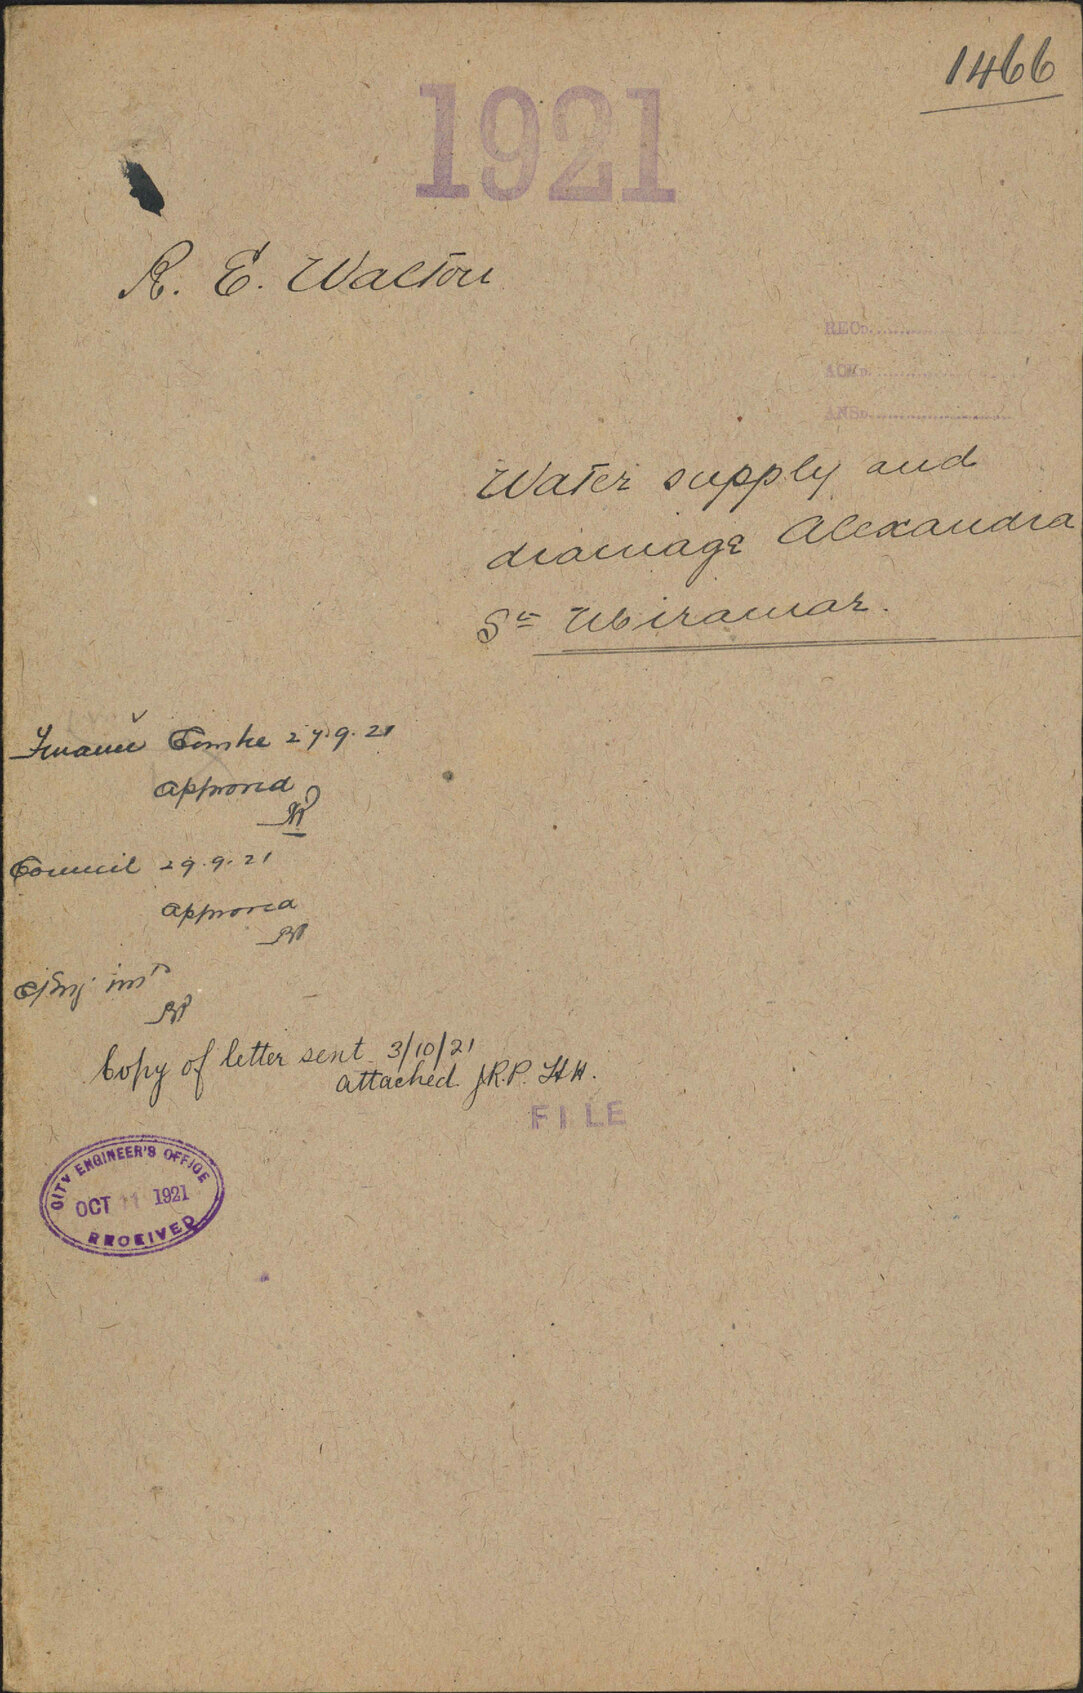 1466
1921
R. E. Walton
RECD.
ACKD.
ANSD.
Water supply and
drainage Alexandra
St Miramar.
Finance Comtee 27.9.21
approved
Council 29.9.21
approved
C/Eng.
Copy of letter sent 3/10/21
attached. J.R.P. HH.
FILE
CITY ENGINEER'S OFFICE
OCT 11 1921
RECEIVED